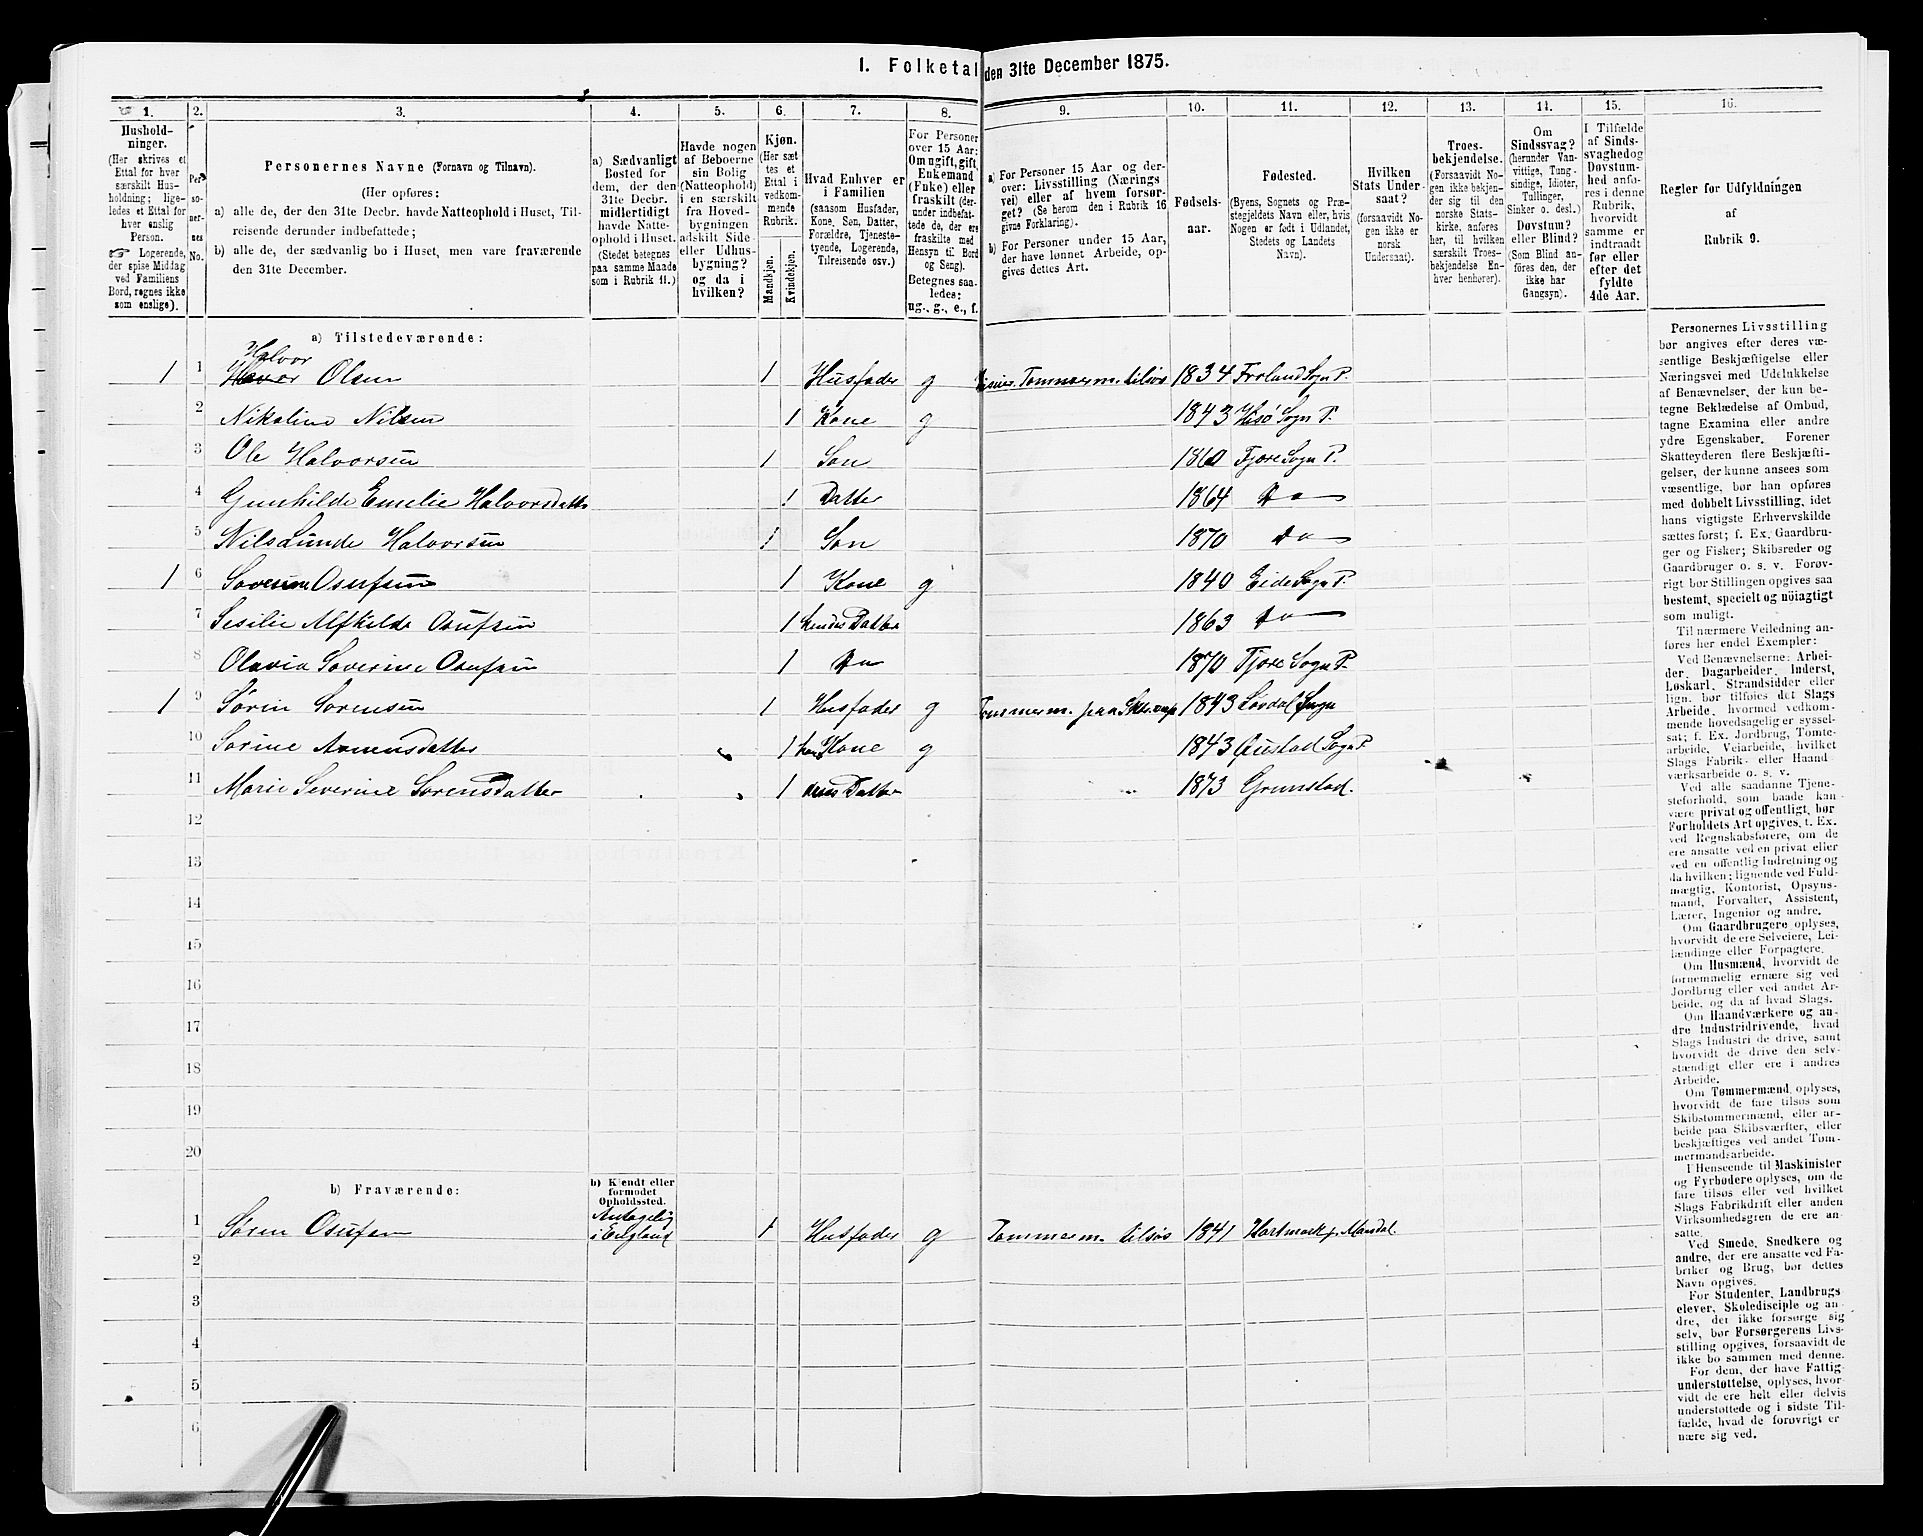 I. Folketal den 31te December 1875.
1. 2. 3. 4. 5. 6. 7. 8. 9. 10. 11. 12. 13. 14. 15. 16.
Hushold-
ninger.
(Her skrives et
Ettal for hver
særskilt Hus-
holdning; lige-
ledes et Ettal for
hver enslig
Person.
☞ Logerende,
der spise Middag
ved Familiens
Bord, regnes ikke
som enslige).
Per-
so-
ner-
nes
No.
Personernes Navne (Fornavn og Tilnavn).
(Her opføres:
a) alle de, der den 31te Decbr. havde Natteophold i Huset, Til-
reisende derunder indbefattede;
b) alle de, der sædvanlig bo i Huset, men vare fraværende
den 31te December.
a) Sædvanligt
Bosted for
dem, der den
31te Decbr.
midlertidigt
havde Natte-
ophold i Huset.
(Stedet betegnes
paa samme Maade
som i Rubrik 11.)
Havde nogen
af Beboerne
sin Bolig
(Natteophold)
i en særskilt
fra Hoved-
bygningen
adskilt Side-
eller Udhus-
bygning?
og da i
hvilken?
Kjøn.
(Her sæt-
tes et
Ettal i
vedkom-
mende
Rubrik.
Mandkjøn.
Kvindekjøn.
Hvad Enhver er
i Familien
(saasom Husfader,
Kone, Søn, Datter,
Forældre, Tjeneste-
tyende, Logerende,
Tilreisende osv.)
For Personer
over 15 Aar:
Om ugift, gift,
Enkemand
(Enke) eller
fraskilt (der-
under indbefat-
tede de, der ere
fraskilte med
Hensyn til Bord
og Seng).
Betegnes saa-
ledes:
ug., g., e., f.
a) For Personer 15 Aar og der-
over: Livsstilling (Nærings
vei) eller af hvem forsør-
get? (Se herom den i Rubrik 16
givne Forklaring).
b) For Personer under 15 Aar,
der have lønnet Arbeide, op-
gives dettes Art.
Fødsels-
aar.
Fødested.
(Byens, Sognets og Præ-
stegjeldets Navn eller, hvis
Nogen er født i Udlandet,
Stedets og Landets
Navn).
Hvilken
Stats Under-
saat?
(forsaavidt No-
gen ikke er
norsk
Undersaat).
Troes-
bekjendelse.
(Forsaavidt No-
gen ikke bekjen-
der sig til den
norske Stats-
kirke, anføres
her, til hvilken
særskilt Troes-
bekjendelse En-
hver henhører).
Om
Sindssvag?
(herunder Van-
vittige, Tung-
sindige, Idioter,
Tullinger,
Sinker o. desl.)
Døvstum?
eller Blind?
(Som Blind an-
føres den, der
ikke har
Gangsyn).
I Tilfælde
af Sinds-
svaghed og
Døvstum-
hed anfø-
res i denne
Rubrik,
hvorvidt
samme er
indtraadt
før eller
efter det
fyldte
4de Aar.
Regler for Udfyldningen
af
Rubrik 9.
a) Tilstedeværende:
Halvor
1 1 Olsen 1 Husfader g Tømmerm. tilsøs 1834 Froland Sogn P.
2 Nikoline Nilsen 1 Kone g 1843 Hisø Sogn P.
3 Ole Halvorsen 1 Søn 1860 Fjære Sogn P.
4 Gunhilde Emelie Halvorsdatter 1 Datter 1864 Do
5 Nils Lunde Halvorsen 1 Søn 1870 Do
1 6 Severine Osufsen 1 Kone g 1840 Eide Sogn P.
7 Sesilie Alfhilde Osufsen 1 hendes Datter 1863 Do
8 Olavia Severine Osufsen 1 Do 1870 Fjære Sogn P.
1 9 Søren Sørensen 1 Husfader g Tømmerm. paa 1843 Sogn
10 Sørine 1 Kone g 1843 Sogn P
11 Marie Severine Sørensdatter 1 Datter 1873 Grimstad.
12
13
14
15
16
17
18
19
20
b) Fraværende:
b) Kjendt eller
formodet
Opholdssted.
1 Søren Osufsen Antagelig i England 1 Husfader g Tømmerm. tilsøs 1841 Hartmark p. Mandal.
2
3
4
5
6
Personernes Livsstilling
bør angives efter deres væ-
sentlige Beskjæftigelse eller
Næringsvei med Udelukkelse
af Benævnelser, der kun be-
tegne Beklædelse af Ombud,
tagne Examina eller andre
ydre Egenskaber. Forener
Skatteyderen flere Beskjæfti-
gelser, der kunne ansees som
væsentlige, bør han opføres
med dobbelt Livsstilling, idet
hans vigtigste Erhvervskilde
sættes først; f. Ex. Gaardbru-
ger og Fisker; Skibsreder og
Gaardbruger o. s. v. Forøv-
rigt bør Stillingen opgives saa
bestemt, specielt og nøiagtigt
som muligt.
Til nærmere Veiledning an-
føres her endel Exempler:
Ved Benævnelserne: Arbei-
der, Dagarbeider, Inderst,
Løskarl, Strandsidder eller
lign. bør tilføies det Slags
Arbeide, hvormed vedkom-
mende hovedsagelig er syssel-
sat; f. Ex. Jordbrug, Tomte-
arbeide, Veiarbeide, hvilket
Slags Fabrik- eller Haand-
værksarbeide o. s. v.
Ved alle saadanne Tjene-
steforhold, som baade kan
være privat og offentligt, bør
Forholdets Art opgives, t. Ex.
ved Regnskabsførere, om de
ere ansatte ved en privat eller
ved en offentlig Indretning og
da hvilken; lignende ved Fuld-
mægtig, Kontorist, Opsyns-
mand, Forvalter, Assistent,
Lærer, Ingeniør og andre.
Om Gaardbrugere oplyses,
hvorvidt de ere Selveiere, Lei-
lændinge eller Forpagtere.
Om Husmænd, hvorvidt de
fornemmelig ernære sig ved
Jordbrug eller ved andet Ar-
beide, og da af hvad Slags.
Om Haandværkere og an-
dre Industridrivende, hvad
Slags Industri de drive, samt
hvorvidt de drive den selv-
stændigt eller ere i andres
Arbeide.
Om Tømmermænd oplyses,
hvorvidt de fare tilsøs som
Skibstømmermænd, eller ar-
beide paa Skibsværfter, eller
beskjæftiges ved andet Tøm-
mermandsarbeide.
I Henseende til Maskinister
og Fyrbødere oplyses, om de
fare tilsøs eller ved hvilket
Slags Fabrikdrift eller anden
Virksomhedsgren de ere an-
satte.
Ved Smede, Snedkere og
andre, der ere ansatte ved Fa-
briker og Brug, bør dettes
Navn opgives.
For Studenter, Landbrugs
elever, Skoledisciple og an-
dre, det ikke forsørge sig
selv, bør Forsørgerens Livs-
stilling opgives, forsaavidt de
ikke bo sammen med denne.
For dem, der have Fattig-
understøttelse, oplyses, hvor-
vidt de ere helt eller delvis
understøttede og i sidste Til-
fælde, hvad de forøvrigt er
nære sig ved.